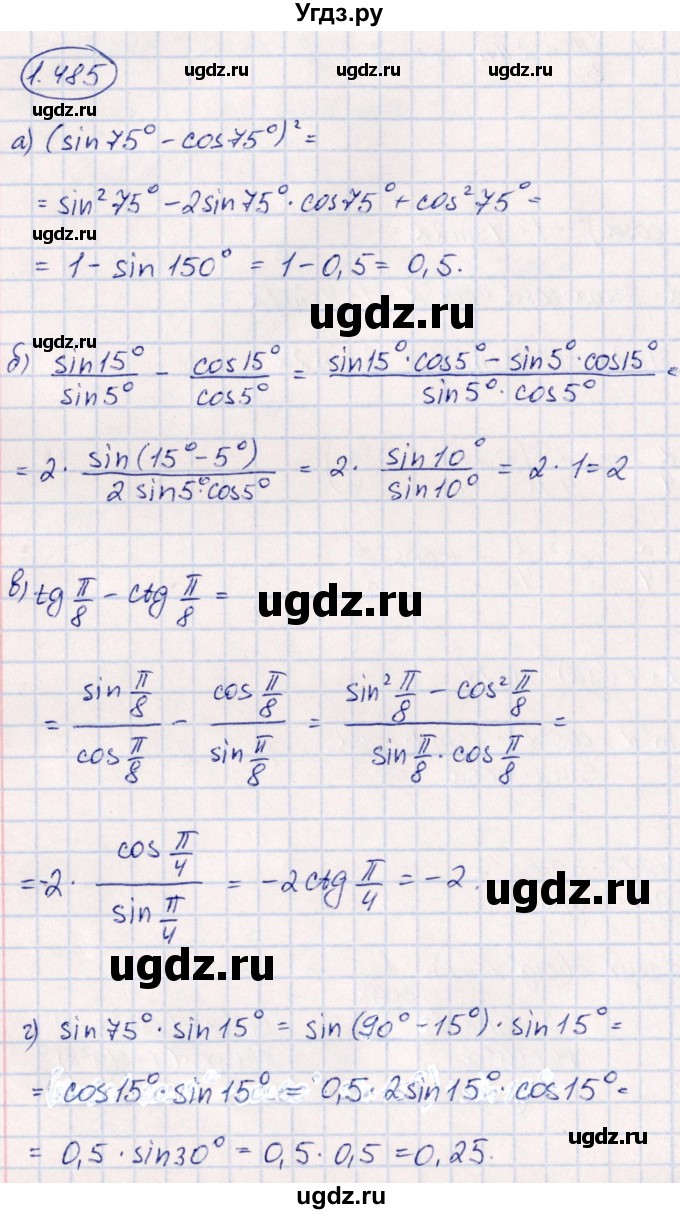 Угдз.ру
1.485
ugdz.ru ugdz.ru ugdz.ru
ugdz.ru
а) (sin 75° - cos 75°)² =
= sin² 75° - 2sin 75° · cos 75° + cos² 75° =
ugdz.ru
= 1 - sin 150° = 1 - 0,5 = 0,5.
ugdz.ru
ugdz.ru
б) sin 15°/sin 5° - cos 15°/cos 5° = (sin 15° · cos 5° - sin 5° · cos 15°)/(sin 5° · cos 5°) =
= 2 · sin(15° - 5°)/(2 sin 5° · cos 5°) = 2 · sin 10°/sin 10° = 2 · 1 = 2
в) tg π/8 - ctg π/8 =
ugdz.ru
= (sin π/8)/(cos π/8) - (cos π/8)/(sin π/8) = (sin² π/8 - cos² π/8)/(sin π/8 · cos π/8) =
= -2 · (cos π/4)/(sin π/4) = -2 ctg π/4 = -2.
ugdz.ru
ugdz.ru
г) sin 75° · sin 15° = sin(90° - 15°) · sin 15° =
= cos 15° · sin 15° = 0,5 · 2 sin 15° · cos 15° =
= 0,5 · sin 30° = 0,5 · 0,5 = 0,25.
ugdz.ru
ugdz.ru